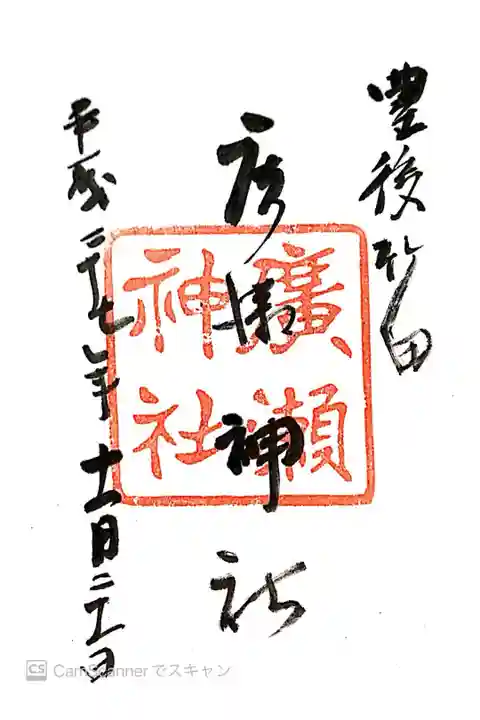 豊後竹田
広瀬神社
廣瀬
神社
平成二十七年十一月二十一日
CS CamScanner でスキャン